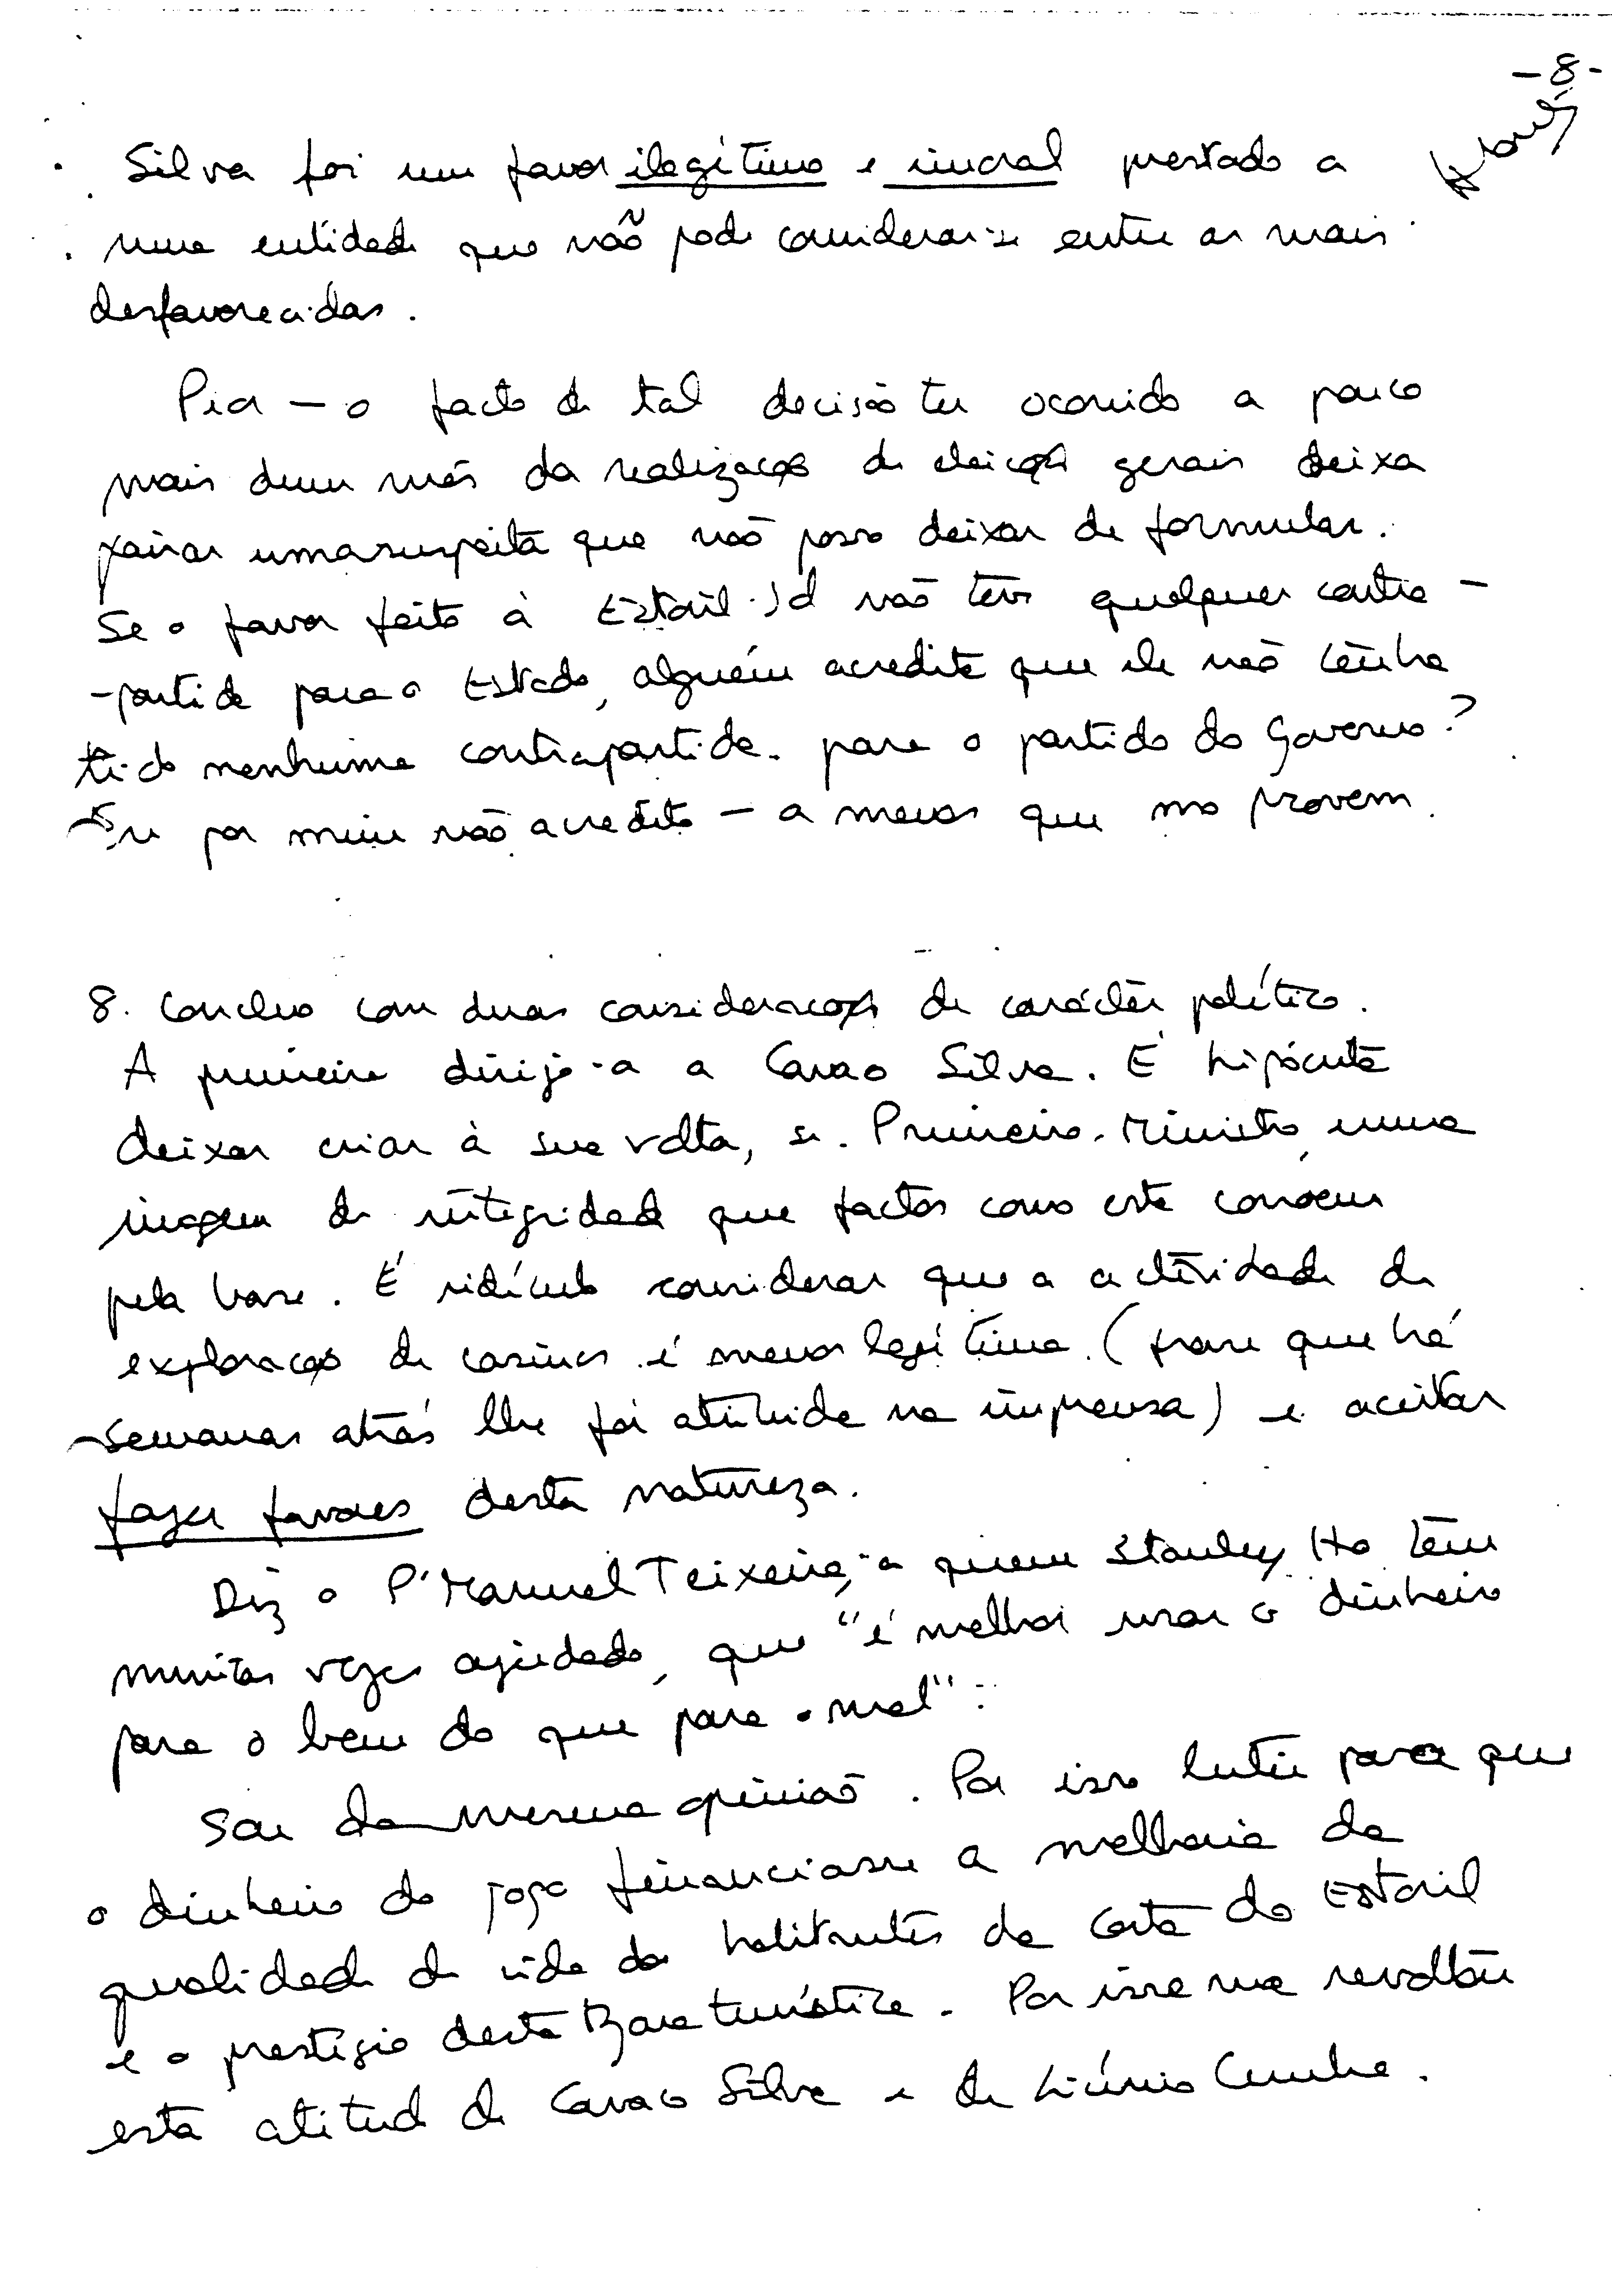 -8-
Silva foi um favor ilegítimo e imoral prestado a
uma entidade que não pode considerar-se entre as mais
desfavorecidas.
Pior - o facto de tal decisão ter ocorrido a pouco
mais dum mês da realização de eleições gerais deixa
pairar uma suspeita que não posso deixar de formular.
Se o favor feito à Estoril-Sol não tem qualquer contra-
-partida para o Estado, alguém acredita que ele não tenha
tido nenhuma contrapartida para o partido do Governo?
Eu por mim não acredito - a menos que mo provem.
8. Concluo com duas considerações de carácter político.
A primeira dirijo-a a Cavaco Silva. É hipócrita
deixar criar à sua volta, sr. Primeiro-Ministro, uma
imagem de integridade que factos como este corroem
pela base. É ridículo considerar que a actividade de
exploração de casinos é menos legítima (frase que há
semanas atrás lhe foi atribuida na imprensa) e aceitar
fazer favores desta natureza.
Diz o Pe Manuel Teixeira, a quem Stanley Ho tem
muitas vezes ajudado, que "é melhor usar o dinheiro
para o bem do que para o mal".
Sou da mesma opinião. Por isso lutei para que
o dinheiro do jogo financiasse a melhoria da
qualidade de vida dos habitantes da Costa do Estoril
e o prestígio desta zona turística. Por isso me revoltou
esta atitude de Cavaco Silva e de Licínio Cunha.